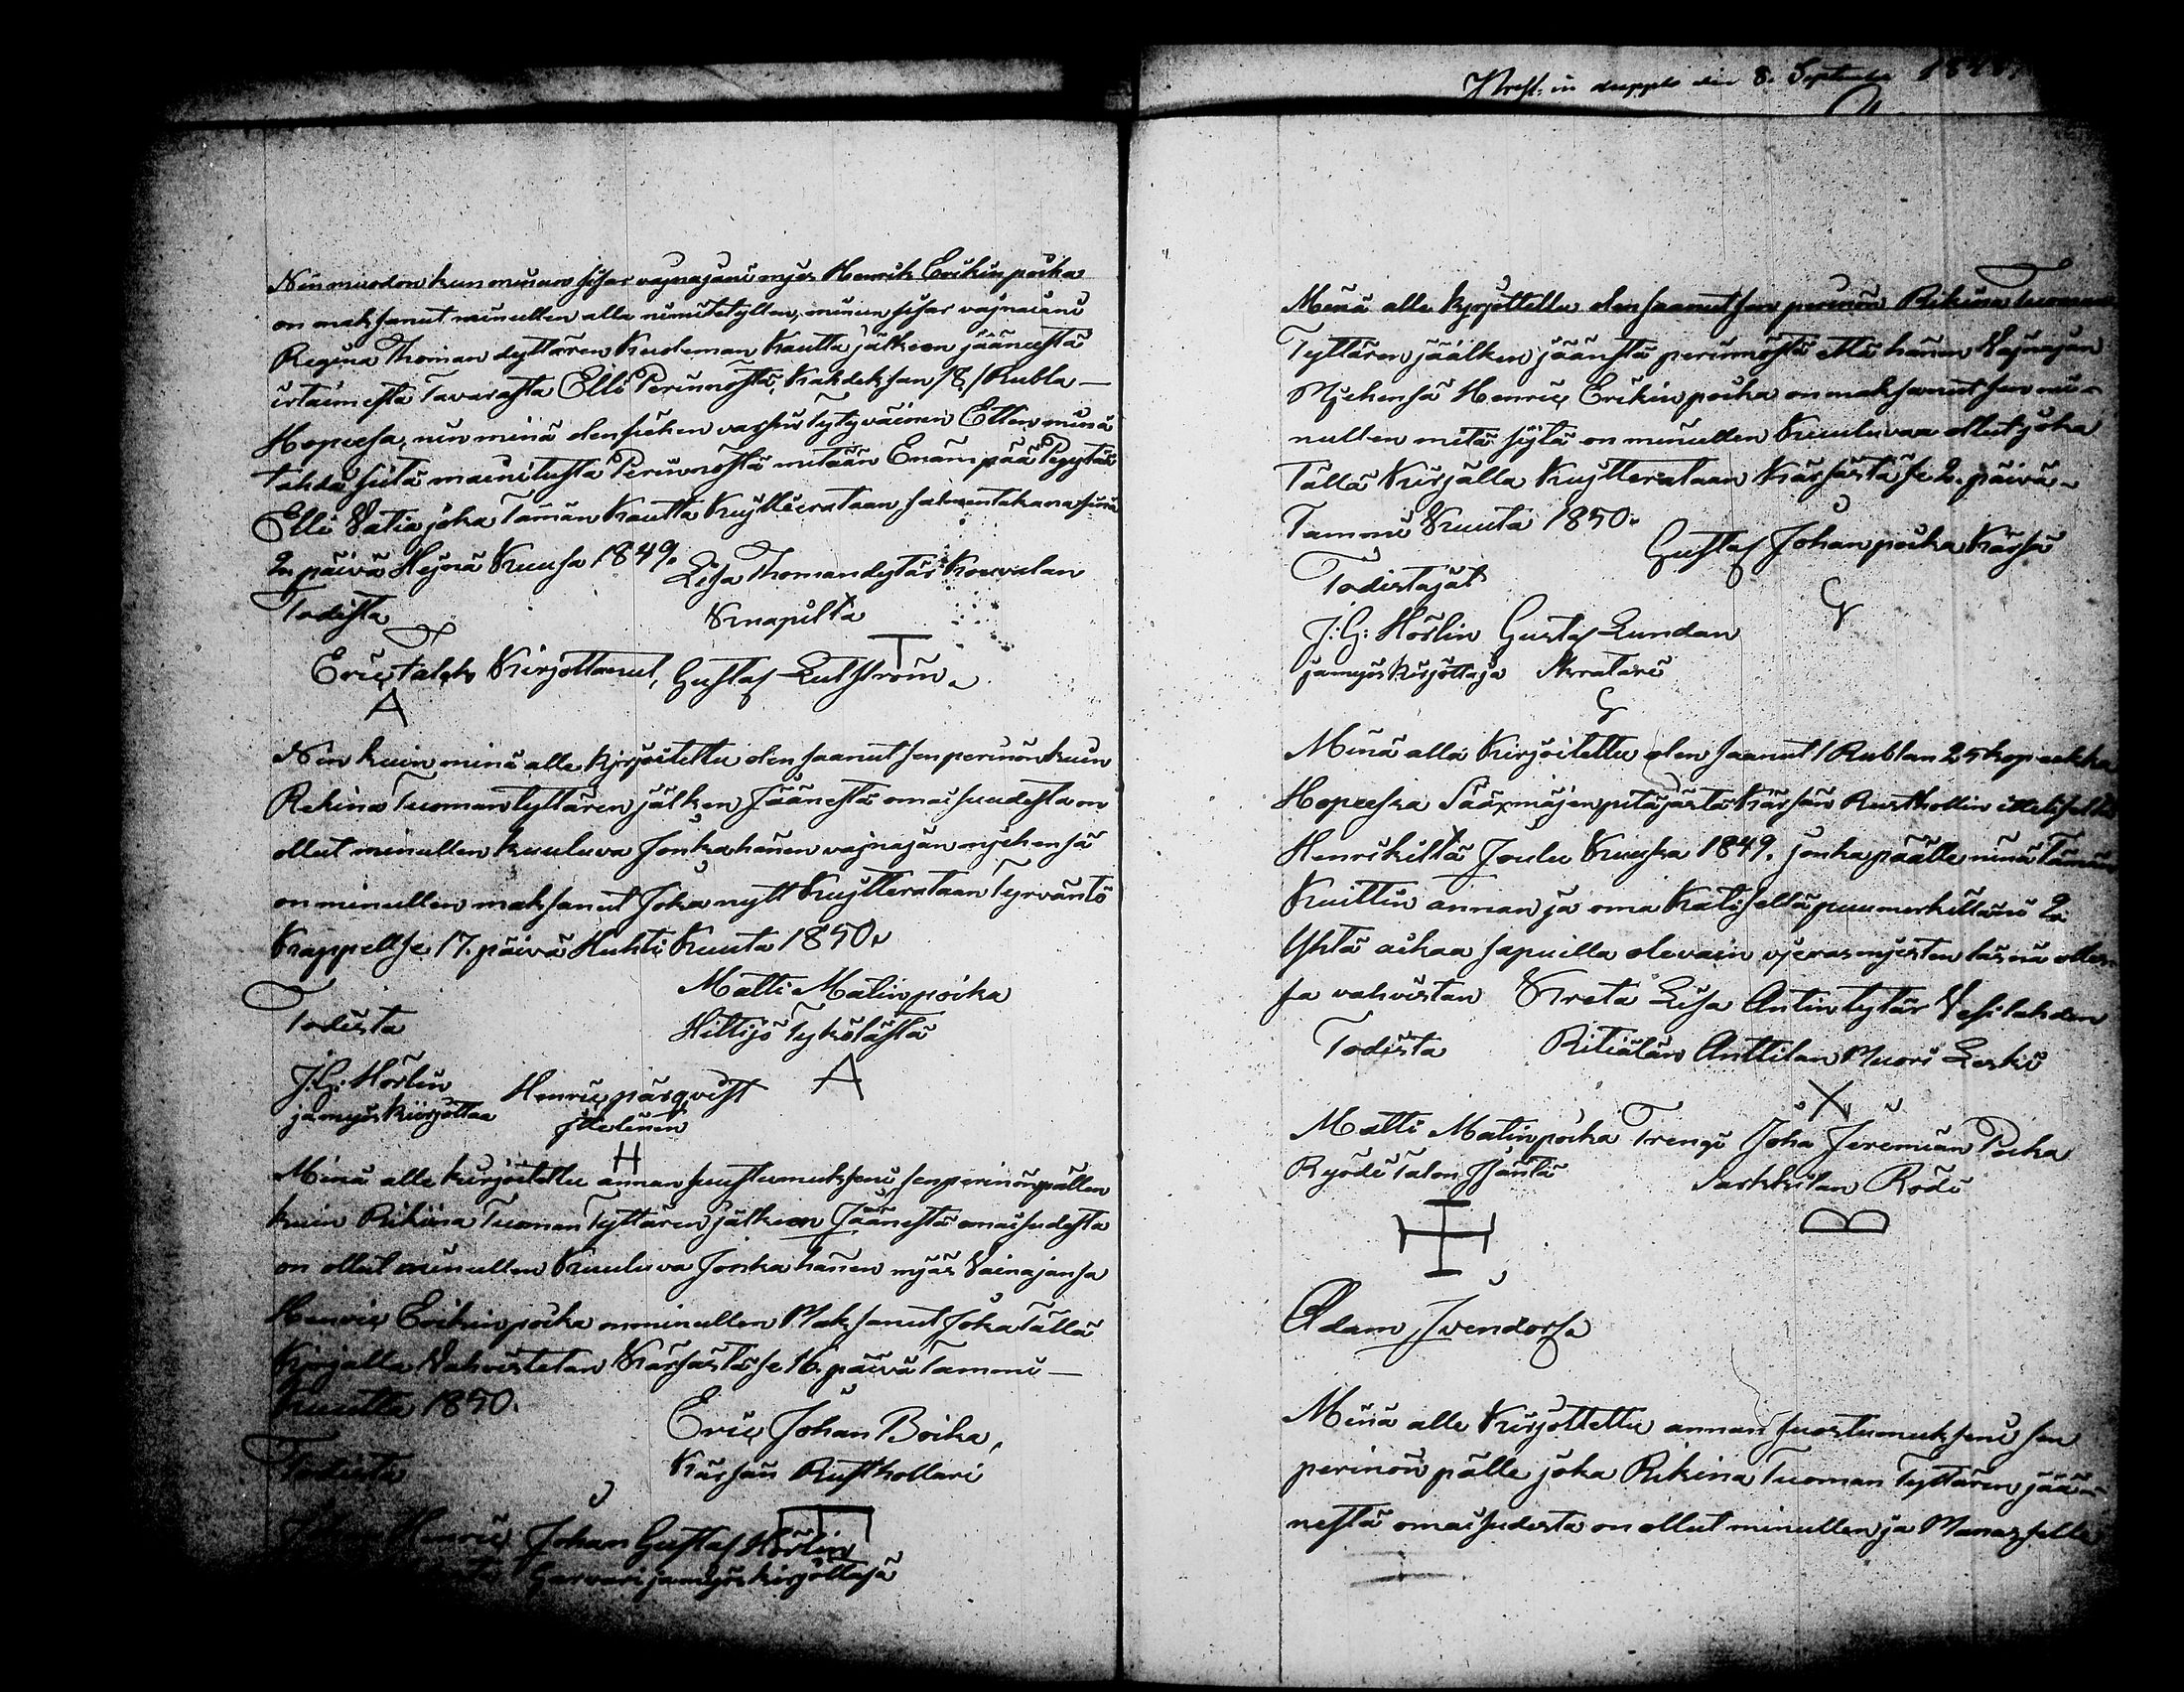 Nin muodon kun minun sisar vajnajani mjes Henrik Erikin poika
on maksanut minullen alla nimitetyllen, minun sisar vajnaiani
Regina Thoman dyttären Kuoleman kautta jälkeen jäänestä
irtaimesta Tavarasta Elli Perinnöstä, kahdeksan /8/ Rubla
Hopeesa, nin minä olen siehen varsin tytyväinen Etten minä
tahdo siitä mainitusta Perinnöstä mitään Enämpää Pyytää
Elli Vatia joka Tämän kautta Kujtterataan,
2n päivä Hejnä Kuusa 1849.
Lisa Thomandytär Kouvalan
Todista
Knapilta
T
Eric Kirjottanut, Gustaf Lutström.
A
Nin kuin minä alle kirjoitettu olen saanut sen perinön kuin
Rekina Tuoman tyttären jälken jäänestä omaisuudesta on
ollut minullen kuuluva Jonka hänen vajnajan mjehensä
on minullen maksanut Joka nytt Kujtterataan Tyrväntö
Kappell se 17. päivä Huhti Kuuta 1850.
Matti Matin poika
Todista
Hiltijö Tykölästä
J: G: Hörlin
Henric pärqvist
A
ja myös kiirjottaa
H
Minä alle kirjoitettu annan suostumukseni, sen perinön pällen
kuin Rikiina Tuoman Tyttären jälkeen Jäänestä omaisudesta
on ollut minullen Kuuluva Jonka hänen mjäs Vainajansa
Henric Erikin poika on minullen Maksanut Joka tällä
Kirjalla Vahvistetan Kärsästä se 16. päivä Tammi
Kuutta 1850.
Eric Johan Boika,
Todista
Kärsän Rusthollari
Johan Henric Johan Gustaf Hörlin
ja myös kirjottaja
Septembr
Minä alle kyrjottettu olen saanut sen perinön Rikina Tuoman
Tyttären jäälken jäänstä perinnöstä että hänen Vajnajan
Mjehensä Henric Erikin poika on maksanut sen mi-
nullen mitä sijtä on minullen Kuuluvaa ollut joka
Tällä Kirjalla Kujtterataan Kärsästä se 2. päivä
Tammi Kuuta 1850.
Gustaf Johan poika Kärsä
Todistajat
G
J: G: Hörlin Gustaf Lundan
ja myös kirjottaja
G
Minä alla Kirjoitettu olen saanut 1 Rublan 25 kopeekka
Hopeessa Sääxmäjen pitäjästä Kärsän Rusthollin ittelliseltä
Henrikiltä Joulu Kuussa 1849. jonka päälle minä Tämän
Kuittin annan ja oma Kätisellä puumerkilläni 2a
Yhtä aikaa sapuilla olevain vjerasmjesten läsnä olles-
sa vahvistan Kreta Lisa Antintytär Vesilahden
Todista
Ritiälän Anttilan Muori Leski
X
Matti Matin poika Trengi Joha Jeremian Poika
Isäntä
B
Adam
Minä alle Kirjottettu annan suostumukseni sen
perinön pälle joka Rikina Tuoman Tyttären jää-
nestä omaisudesta on ollut minullen ja